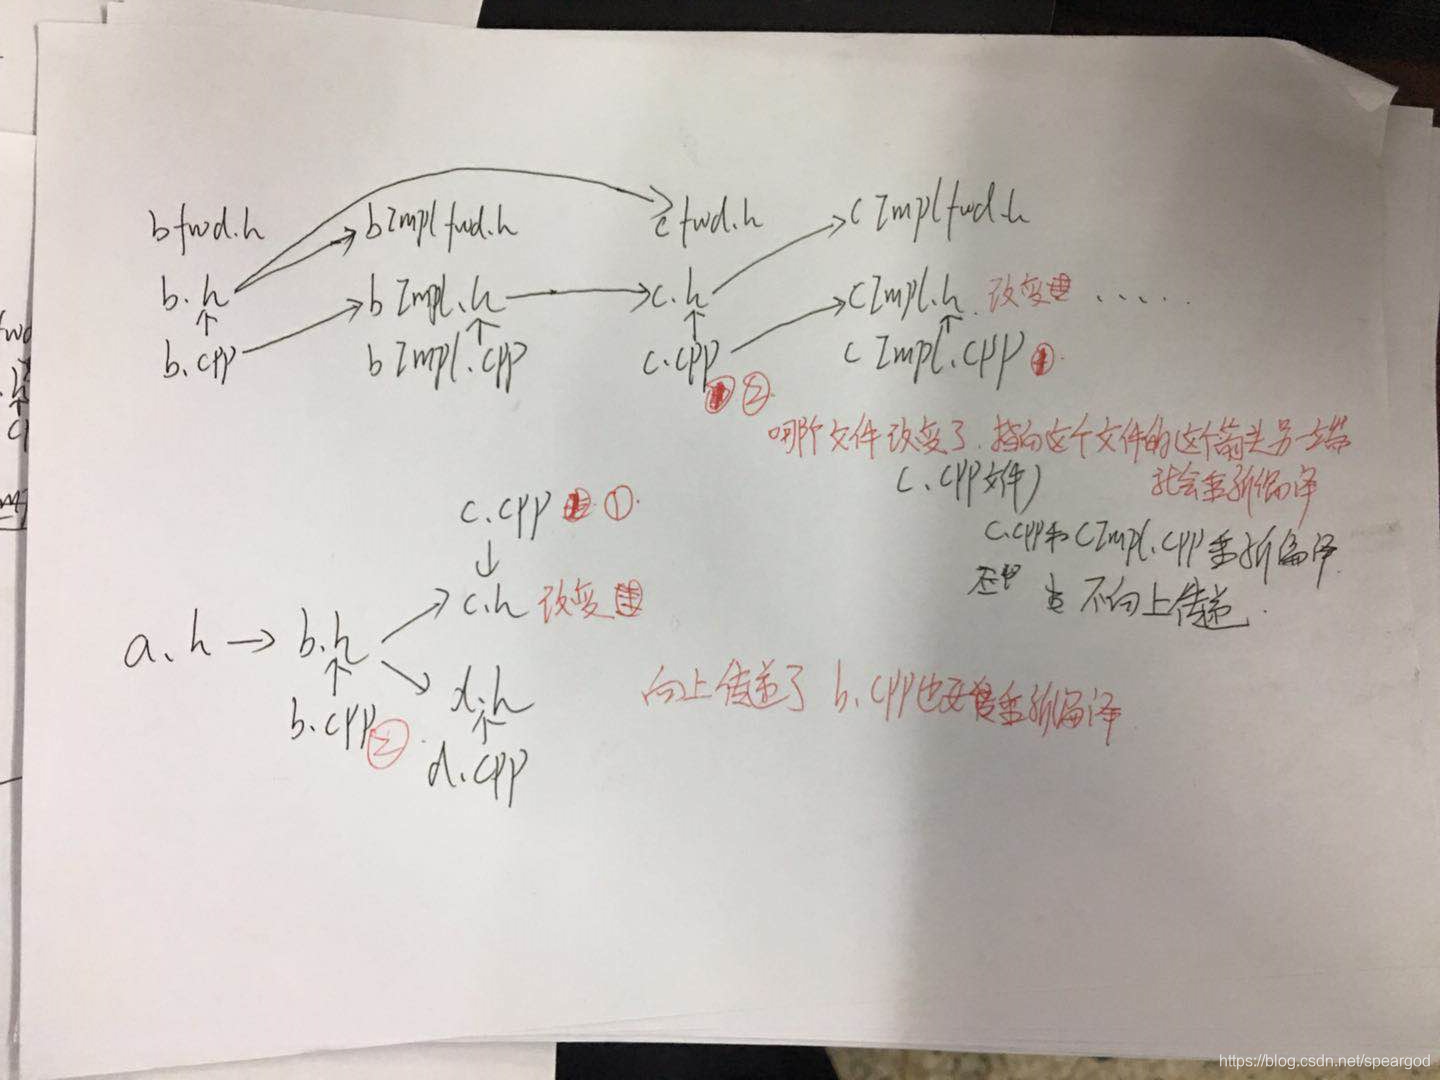 bfwd.h bImplfwd.h cfwd.h cImplfwd.h
b.h bImpl.h c.h cImpl.h 改变 ......
b.cpp bImpl.cpp c.cpp cImpl.cpp ①.
②.
哪个文件改变了.指向这个文件的这个箭头另一端
就会重新编译
c.cpp文件)
c.cpp和cImpl.cpp重新编译.
不向上传递.
c.cpp ①.
c.h 改变
a.h b.h
d.h
b.cpp ②.
d.cpp
向上传递了 b.cpp也要重新编译.
https://blog.csdn.net/speargod